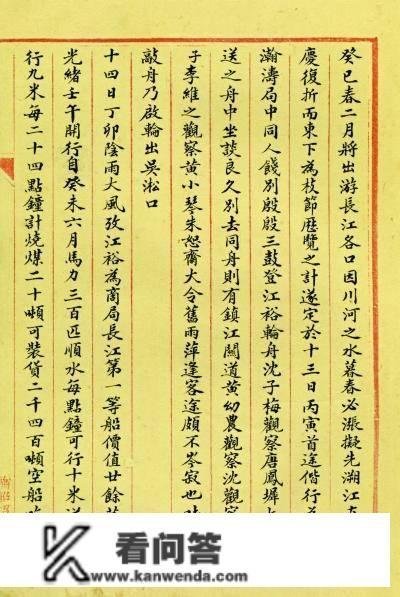 癸巳春二月將出游長江各口因川河之水暮春必漲擬先溯江
慶復折而東下為枝節歷覽之計遂定於十三日丙寅首途偕行
瀚濤局中同人餞別殷殷三鼓登江裕輪舟沈子梅觀察唐鳳墀
送之舟中坐談良久別去同舟則有鎮江關道黃幼農觀察沈觀
子李維之觀察黃小琴朱恕齋大令舊雨萍逢客途頗不岑寂也
敲舟乃啟輪出吳淞口
十四日丁卯陰雨大風攷江裕為商局長江第一等船價值廿餘
光緒壬午開行自癸未六月馬力三百匹順水每點鐘可行十米
行九米每二十四點鐘計燒煤二十噸可裝貨二千四百噸空船
K 看问答
www.kanwenda.com